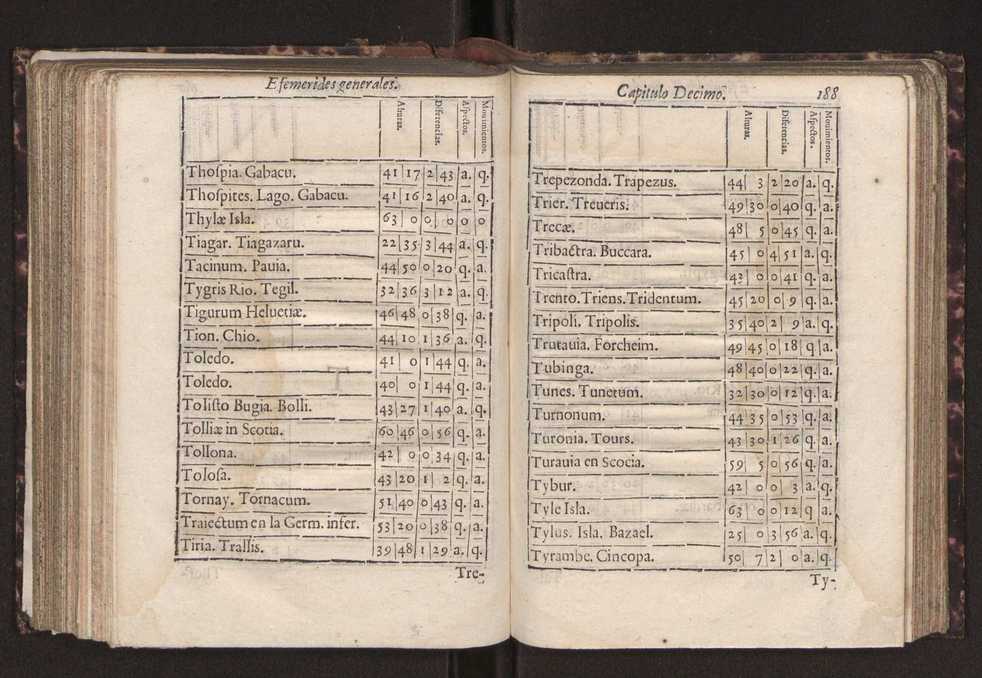 Efemerides generales.
Alturas. Diferencias. Aſpectos. Mouimientos.
Thoſpia. Gabacu. 41 17 2 43 a. q.
Thoſpites. Lago. Gabacu. 41 16 2 40 a. q.
Thylæ Isla. 63 0 0 0 0 0
Tiagar. Tiagazaru. 22 35 3 44 a. q.
Tacinum. Pauia. 44 50 0 20 q. a.
Tygris Rio. Tegil. 32 36 3 12 a. q.
Tigurum Heluetiæ. 46 48 0 38 q. a.
Tion. Chio. 44 10 1 36 a. q.
Toledo. 41 0 1 44 q. a.
Toledo. 40 0 1 44 q. a.
Toliſto Bugia. Bolli. 43 27 1 40 a. q.
Tolliæ in Scotia. 60 46 0 56 q. a.
Tollona. 42 0 0 34 q. a.
Toloſa. 43 20 1 2 q. a.
Tornay. Tornacum. 51 40 0 43 q. a.
Traiectum en la Germ. infer. 53 20 0 38 q. a.
Tiria. Tralſis. 39 48 1 29 a. q.
Tre-
Capitulo Decimo. 188
Alturas. Diferencias. Aſpectos. Mouimientos.
Trepezonda. Trapezus. 44 3 2 20 a. q.
Trier. Treueris. 49 30 0 40 q. a.
Trecæ. 48 5 0 45 q. a.
Tribactra. Buccara. 45 0 4 51 a. q.
Tricaſtra. 42 0 0 41 q. a.
Trento. Triens. Tridentum. 45 20 0 9 q. a.
Tripoli. Tripolis. 35 40 2 9 a. q.
Trutauia. Forcheim. 49 45 0 18 q a.
Tubinga. 48 40 0 22 q. a.
Tunes. Tunetum. 32 30 0 12 q. a.
Turnonum. 44 35 0 53 q. a.
Turonia. Tours. 43 30 1 26 q. a.
Turauia en Scocia. 59 5 0 56 q. a.
Tybur. 42 0 0 3 a. q.
Tyle Isla. 63 0 0 12 q a.
Tylus. Isla. Bazael. 25 0 3 56 a. q.
Tyrambe. Cincopa. 50 7 2 0 a. q.
Ty-